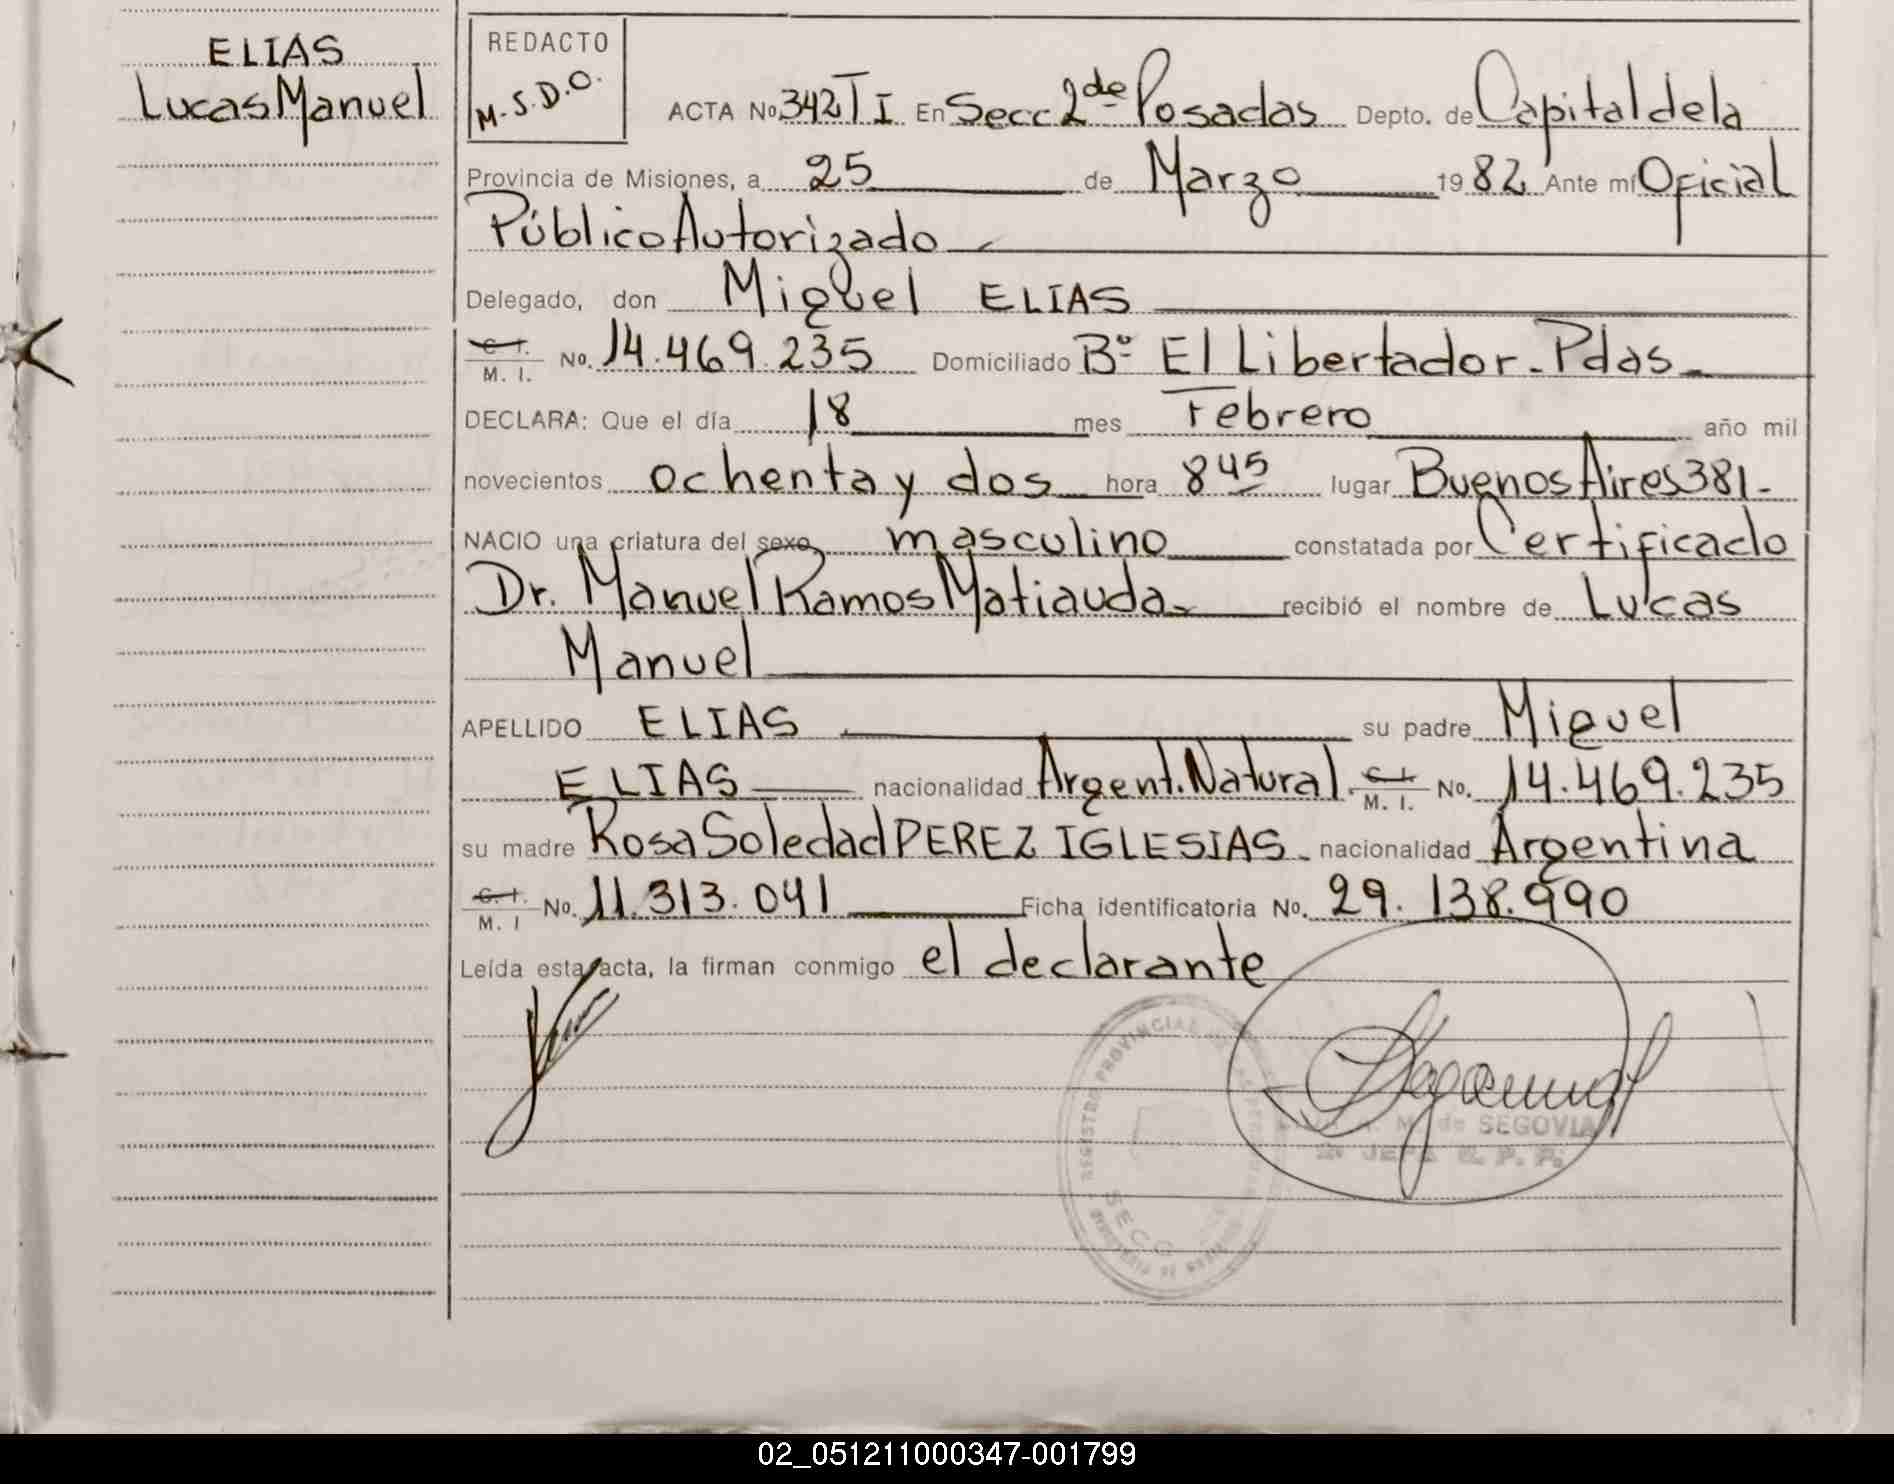 ELIAS
Lucas Manuel
REDACTO
M.S.D.O.
ACTA No. 342 T I En Secc 2de Posadas Depto. de Capital de la
Provincia de Misiones, a 25 de Marzo 1982 Ante mí Oficial
Público Autorizado
Delegado, don Miguel ELIAS
C. I. M. I. No. 14.469.235 Domiciliado Bº El Libertador - Pdas
DECLARA: Que el día 18 mes Febrero año mil
novecientos ochenta y dos hora 8 45 lugar Buenos Aires 381-
NACIO una criatura del sexo masculino constatada por Certificado
Dr. Manuel Ramos Matiauda recibió el nombre de Lucas
Manuel
APELLIDO ELIAS su padre Miguel
ELIAS nacionalidad Argent. Natural. C. I. M. I. No. 14.469.235
su madre Rosa Soledad PEREZ IGLESIAS. nacionalidad Argentina
C. I. M. I No. 11.313.041 Ficha identificatoria No. 29.138.990
Leída esta acta, la firman conmigo el declarante
REGISTRO PROVINCIAL
M. de SEGOVIA
JEFA R. P. P.
SECC
02_051211000347-001799